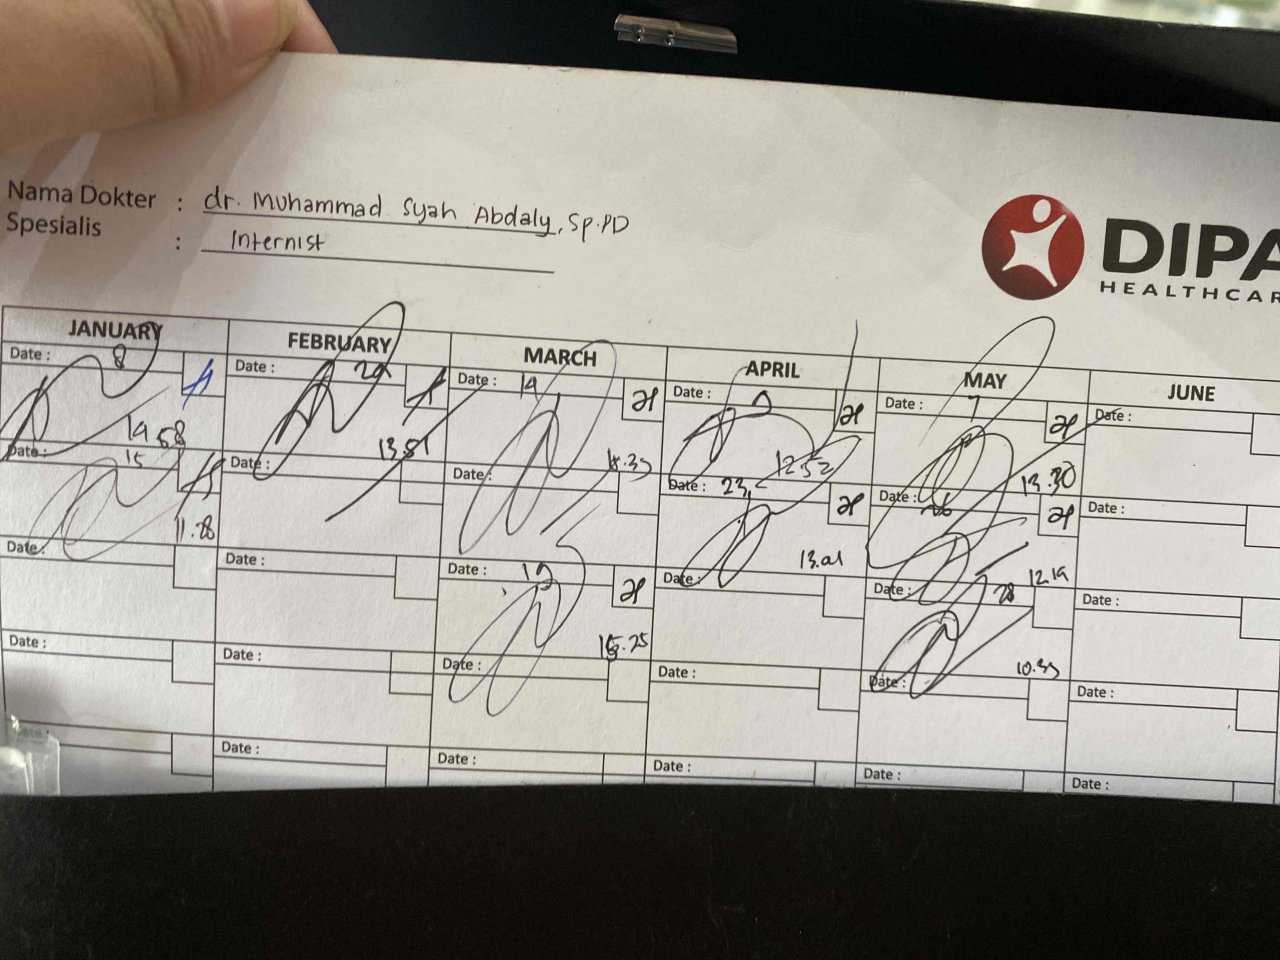 Nama Dokter : dr. Muhammad Syah Abdaly, Sp.PD
Spesialis : Internist
DIPA
HEALTHCAR
JANUARY FEBRUARY MARCH APRIL MAY JUNE
Date : 8
14.58
Date : 15
11.28
Date :
Date :
Date :
13.51
Date :
Date :
Date :
Date :
Date : 19
Date :
Date : 19
15.25
Date :
Date :
Date :
12.52
Date : 23
13.01
Date :
Date :
Date :
Date : 7
13.30
Date : 26
12.19
Date : 28
10.35
Date :
Date :
Date :
Date :
Date :
Date :
Date :